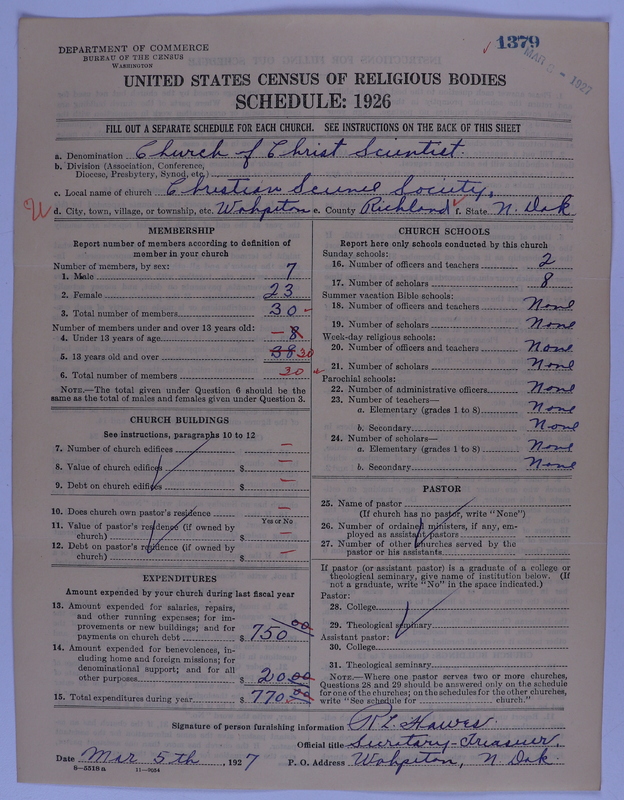 DEPARTMENT OF COMMERCE
BUREAU OF THE CENSUS
WASHINGTON
1379
MAR - 1927
UNITED STATES CENSUS OF RELIGIOUS BODIES
SCHEDULE: 1926
FILL OUT A SEPARATE SCHEDULE FOR EACH CHURCH. SEE INSTRUCTIONS ON THE BACK OF THIS SHEET
a. Denomination Church of Christ Scientist.
b. Division (Association, Conference,
Diocese, Presbytery, Synod, etc.)
c. Local name of church Christian Science Society,
d. City, town, village, or township, etc. Wahpeton e. County Richland f. State N. Dak
MEMBERSHIP
Report number of members according to definition of
member in your church
Number of members, by sex:
1. Male 7
2. Female 23
3. Total number of members 30
Number of members under and over 13 years old:
4. Under 13 years of age - 8
5. 13 years old and over 38 30
6. Total number of members 30
NOTE.—The total given under Question 6 should be
the same as the total of males and females given under Question 3.
CHURCH BUILDINGS
See instructions, paragraphs 10 to 12
7. Number of church edifices —
8. Value of church edifices $ —
9. Debt on church edifices $ —
10. Does church own pastor's residence —
Yes or No
11. Value of pastor's residence (if owned by
church) $ —
12. Debt on pastor's residence (if owned by
church) $ —
EXPENDITURES
Amount expended by your church during last fiscal year
13. Amount expended for salaries, repairs,
and other running expenses; for im-
provements or new buildings; and for
payments on church debt $ 750 00
14. Amount expended for benevolences, in-
cluding home and foreign missions; for
denominational support; and for all
other purposes $ 20.00
15. Total expenditures during year $ 770.00
CHURCH SCHOOLS
Report here only schools conducted by this church
Sunday schools:
16. Number of officers and teachers 2
17. Number of scholars 8
Summer vacation Bible schools:
18. Number of officers and teachers None
19. Number of scholars None
Week-day religious schools:
20. Number of officers and teachers None
21. Number of scholars None
Parochial schools:
22. Number of administrative officers None
23. Number of teachers—
a. Elementary (grades 1 to 8) None
b. Secondary None
24. Number of scholars—
a. Elementary (grades 1 to 8) None
b. Secondary None
PASTOR
25. Name of pastor
(If church has no pastor, write "None")
26. Number of ordained ministers, if any, em-
ployed as assistant pastors
27. Number of other churches served by the
pastor or his assistants
If pastor (or assistant pastor) is a graduate of a college or
theological seminary, give name of institution below. (If
not a graduate, write "No" in the space indicated.)
Pastor:
28. College
29. Theological seminary
Assistant pastor:
30. College
31. Theological seminary
NOTE.—Where one pastor serves two or more churches,
Questions 28 and 29 should be answered only on the schedule
for one of the churches; on the schedules for the other churches,
write "See schedule for church."
Signature of person furnishing information R L Hawes.
Official title Secretary-Treasurer,
Date Mar 5th, 1927 P. O. Address Wahpeton, N Dak.
8-5518a 11-3054